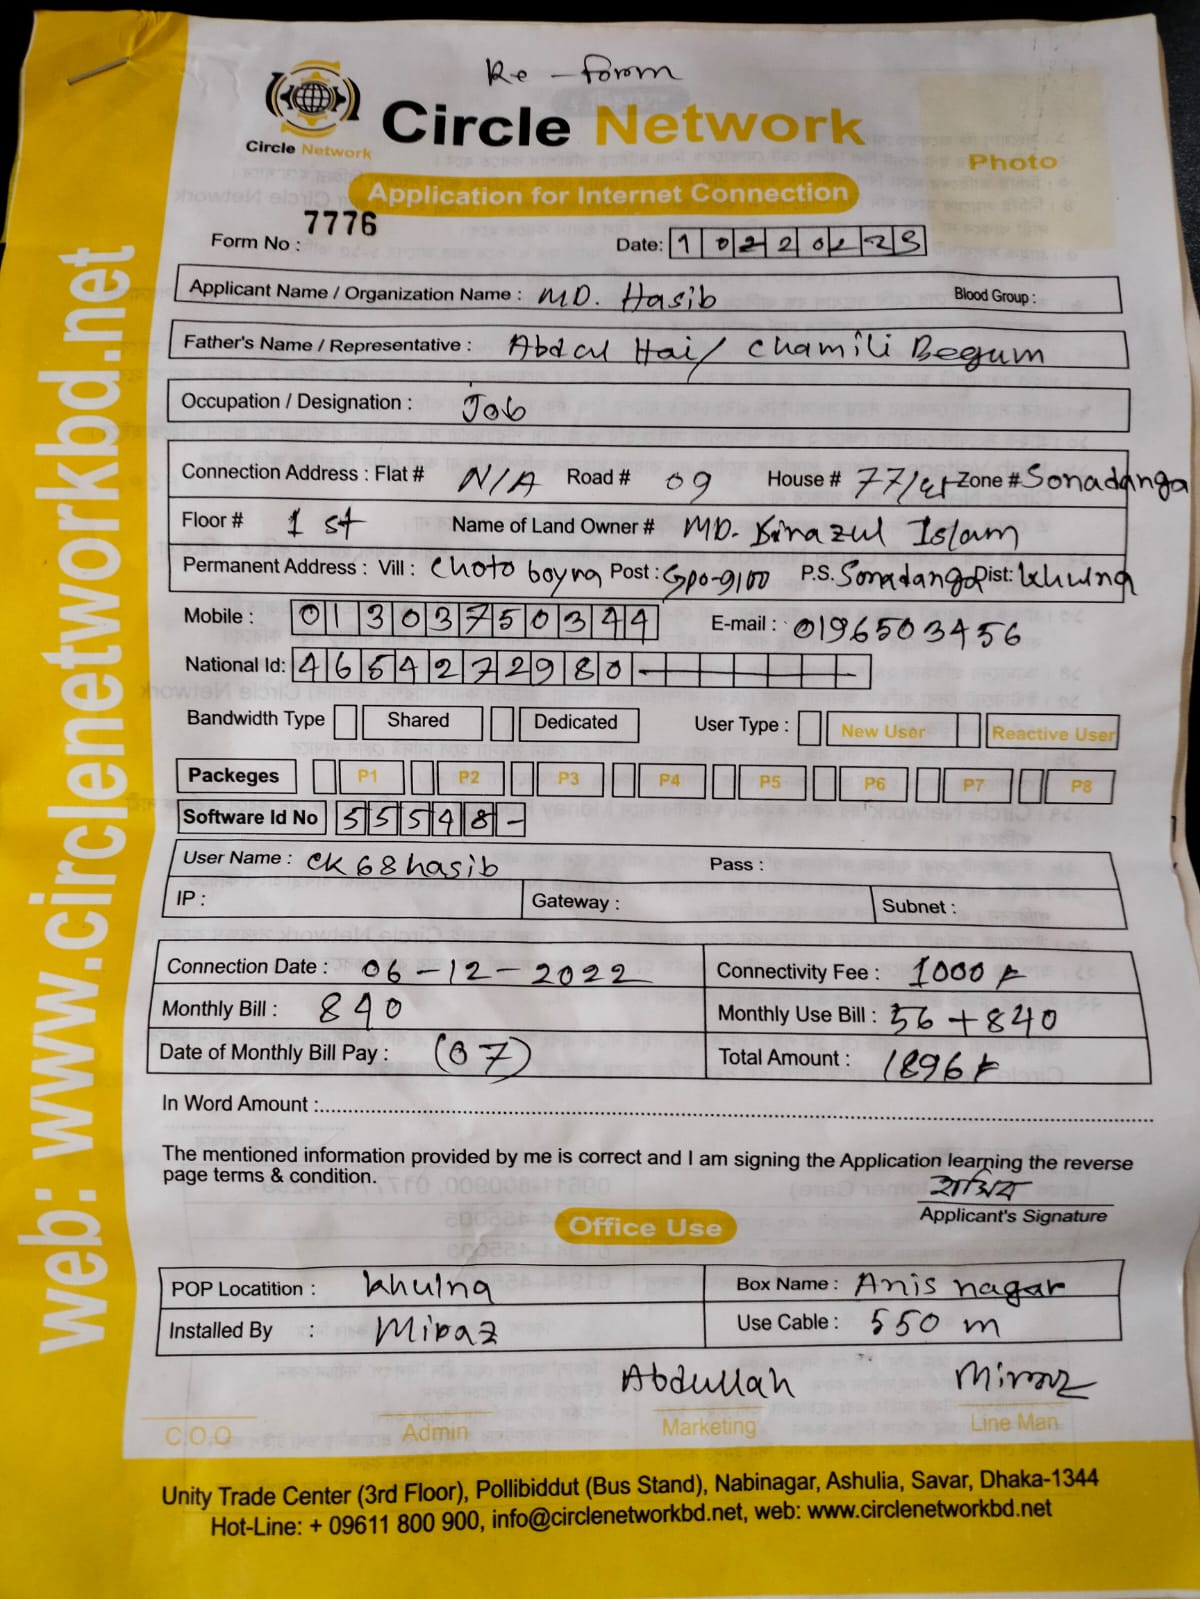 Re-form
Circle Network
Circle Network
Photo
Application for Internet Connection
Form No : 7776
Date: 10 02 2023
Applicant Name / Organization Name : MD. Hasib Blood Group :
Father's Name / Representative : Abdul Hai / Chamili Begum
Occupation / Designation : Job
Connection Address : Flat # N/A Road # 09 House # 77/ Zone # Sonadanga
Floor # 1 st Name of Land Owner # MD. Islam
Permanent Address : Vill : Choto boyra Post : GPO-9100 P.S. Sonadanga Dist: khulna
Mobile : 01303750344 E-mail : 0196503456
National Id: 4654272980-
Bandwidth Type Shared Dedicated User Type : New User Reactive User
Packeges P1 P2 P3 P4 P5 P6 P7 P8
Software Id No 55548-
User Name : ck68hasib Pass :
IP : Gateway : Subnet :
Connection Date : 06-12-2022 Connectivity Fee : 1000 ৳
Monthly Bill : 840 Monthly Use Bill : 56+840
Date of Monthly Bill Pay : (07) Total Amount : 1896 ৳
In Word Amount :
The mentioned information provided by me is correct and I am signing the Application learning the reverse
page terms & condition.
হাসিব
Applicant's Signature
Office Use
POP Locatition : khulna Box Name : Anis nagar
Installed By : Miraz Use Cable : 550 m
Abdullah Miraz
C.O.O Admin Marketing Line Man
Unity Trade Center (3rd Floor), Pollibiddut (Bus Stand), Nabinagar, Ashulia, Savar, Dhaka-1344
Hot-Line: + 09611 800 900, info@circlenetworkbd.net, web: www.circlenetworkbd.net
web: www.circlenetworkbd.net